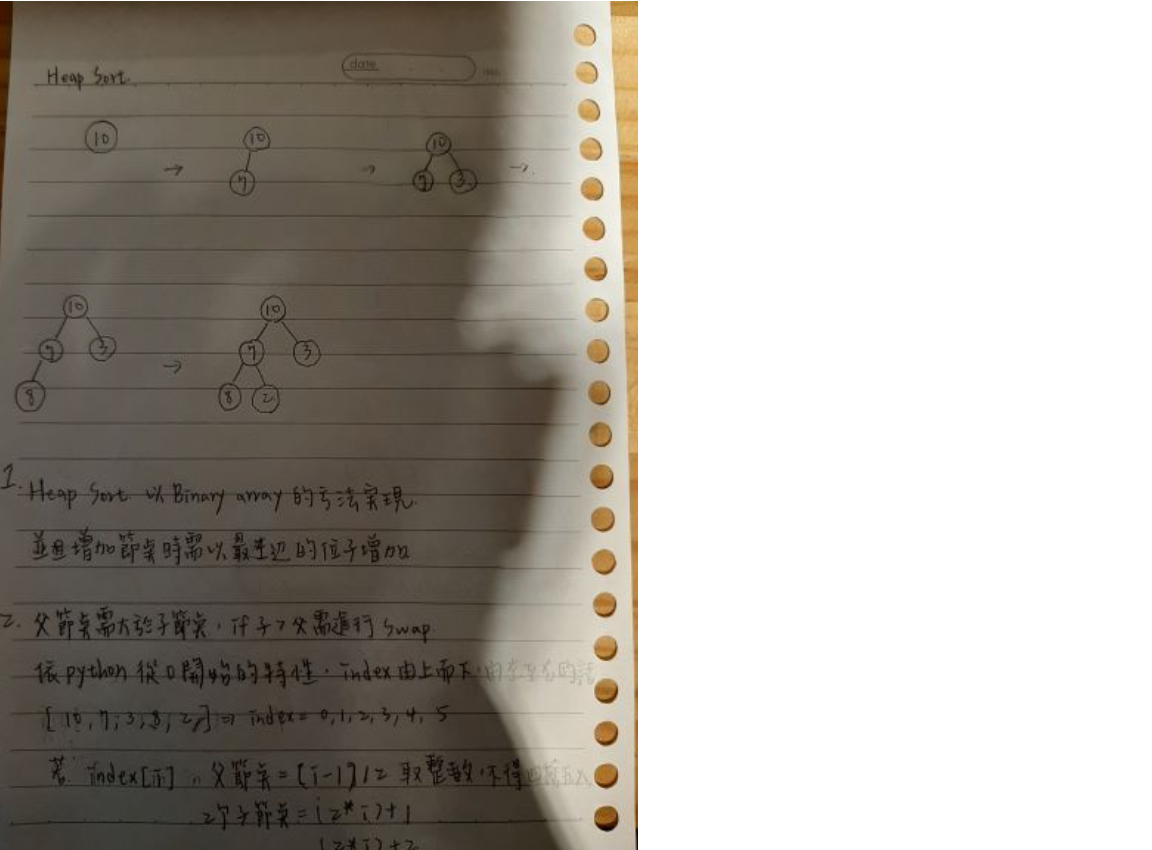 Heap Sort.
date
10 → 10 7 → 10 7 3 →
10 7 3 8 → 10 7 3 8 2
1. Heap Sort 以 Binary array 的方法實現.
並且增加節點時需以最左边的位子增加
2. 父節點需大於子節點, if 子 > 父需進行 Swap.
依 python 從 0 開始的特性, index 由上而下, 由左至右的話
[10, 7, 3, 8, 2,] ⇒ index = 0, 1, 2, 3, 4, 5
若 index[i] 父節点 = [i-1]/2 取整數, 不得四捨五入
2个子節点 = (2*i)+1
(2*i)+2